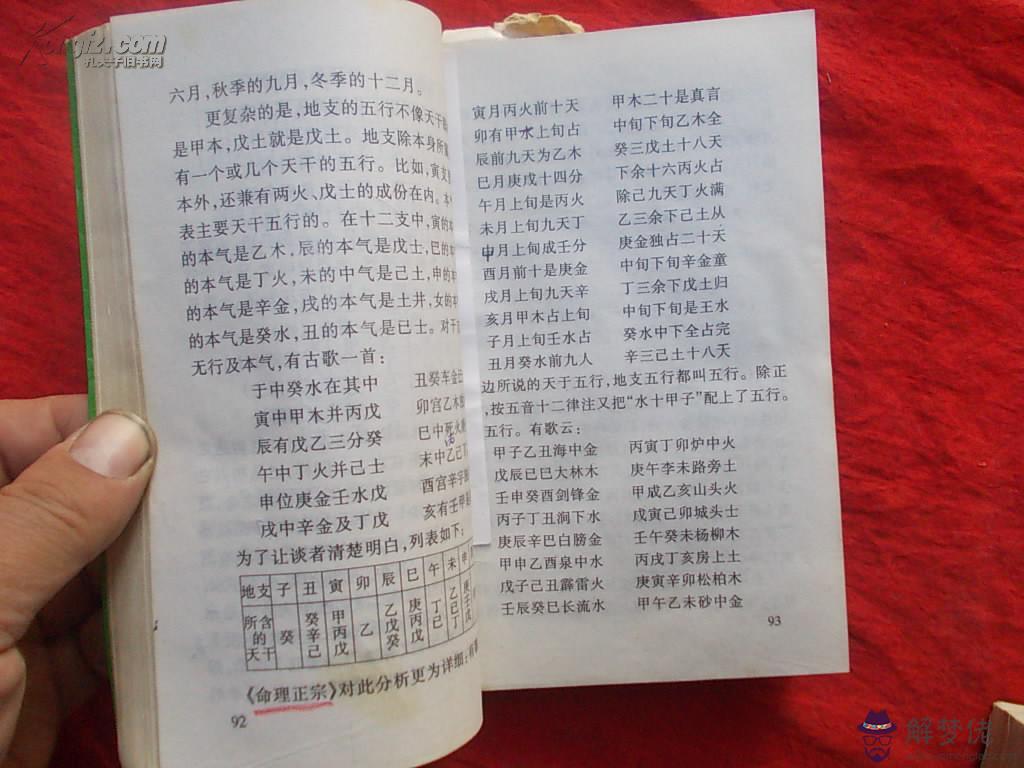 Kongfz.com
孔夫子旧书网
六月,秋季的九月,冬季的十二月。
更复杂的是,地支的五行不像天干
是甲本,戊土就是戊土。地支除本身所
有一个或几个天干的五行。比如,寅支
本外,还兼有两火、戊士的成份在内。本
表主要天干五行的。在十二支中,寅的本
的本气是乙木,辰的本气是戊士,巳的本
的本气是丁火,未的中气是己土,申的本
的本气是辛金,戌的本气是土井,女的本
的本气是癸水,丑的本气是已士。对于
无行及本气,有古歌一首:
于中癸水在其中 丑癸车金
寅中甲木并丙戊 卯宫乙木
辰有戊乙三分癸 巳中死火
午中丁火并己士 末中乙己丁
申位庚金壬水戊 酉宫辛字
戌中辛金及丁戊 亥有壬甲
为了让谈者清楚明白,列表如下:
地支 子 丑 寅 卯 辰 巳 午 未 申
所含的天干 癸 癸辛己 甲丙戊 乙 乙戊癸 庚丙戊 丁己 乙巳丁 庚壬戊
《命理正宗》对此分析更为详细:
92
寅月丙火前十天 甲木二十是真言
卯有甲水上旬占 中旬下旬乙木全
辰前九天为乙木 癸三戊土十八天
巳月庚戊十四分 下余十六丙火占
午月上旬是丙火 除己九天丁火满
未月上旬九天丁 乙三余下己土从
申月上旬成壬分 庚金独占二十天
酉月前十是庚金 中旬下旬辛金童
戌月上旬九天辛 丁三余下戊土归
亥月甲木占上旬 中旬下旬是壬水
子月上旬壬水占 癸水中下全占完
丑月癸水前九人 辛三己土十八天
边所说的天于五行,地支五行都叫五行。除正
,按五音十二律注又把“水十甲子”配上了五行。
五行。有歌云:
甲子乙丑海中金 丙寅丁卯炉中火
戊辰己巳大林木 庚午李未路旁土
壬申癸酉剑锋金 甲成乙亥山头火
丙子丁丑涧下水 戊寅己卯城头士
庚辰辛巴白膀金 壬午癸未杨柳木
甲申乙酉泉中水 丙戌丁亥房上土
戊子己丑霹雷火 庚寅辛卯松柏木
壬辰癸巳长流水 甲午乙未砂中金
93
解梦佬
www.jiemenglao.com